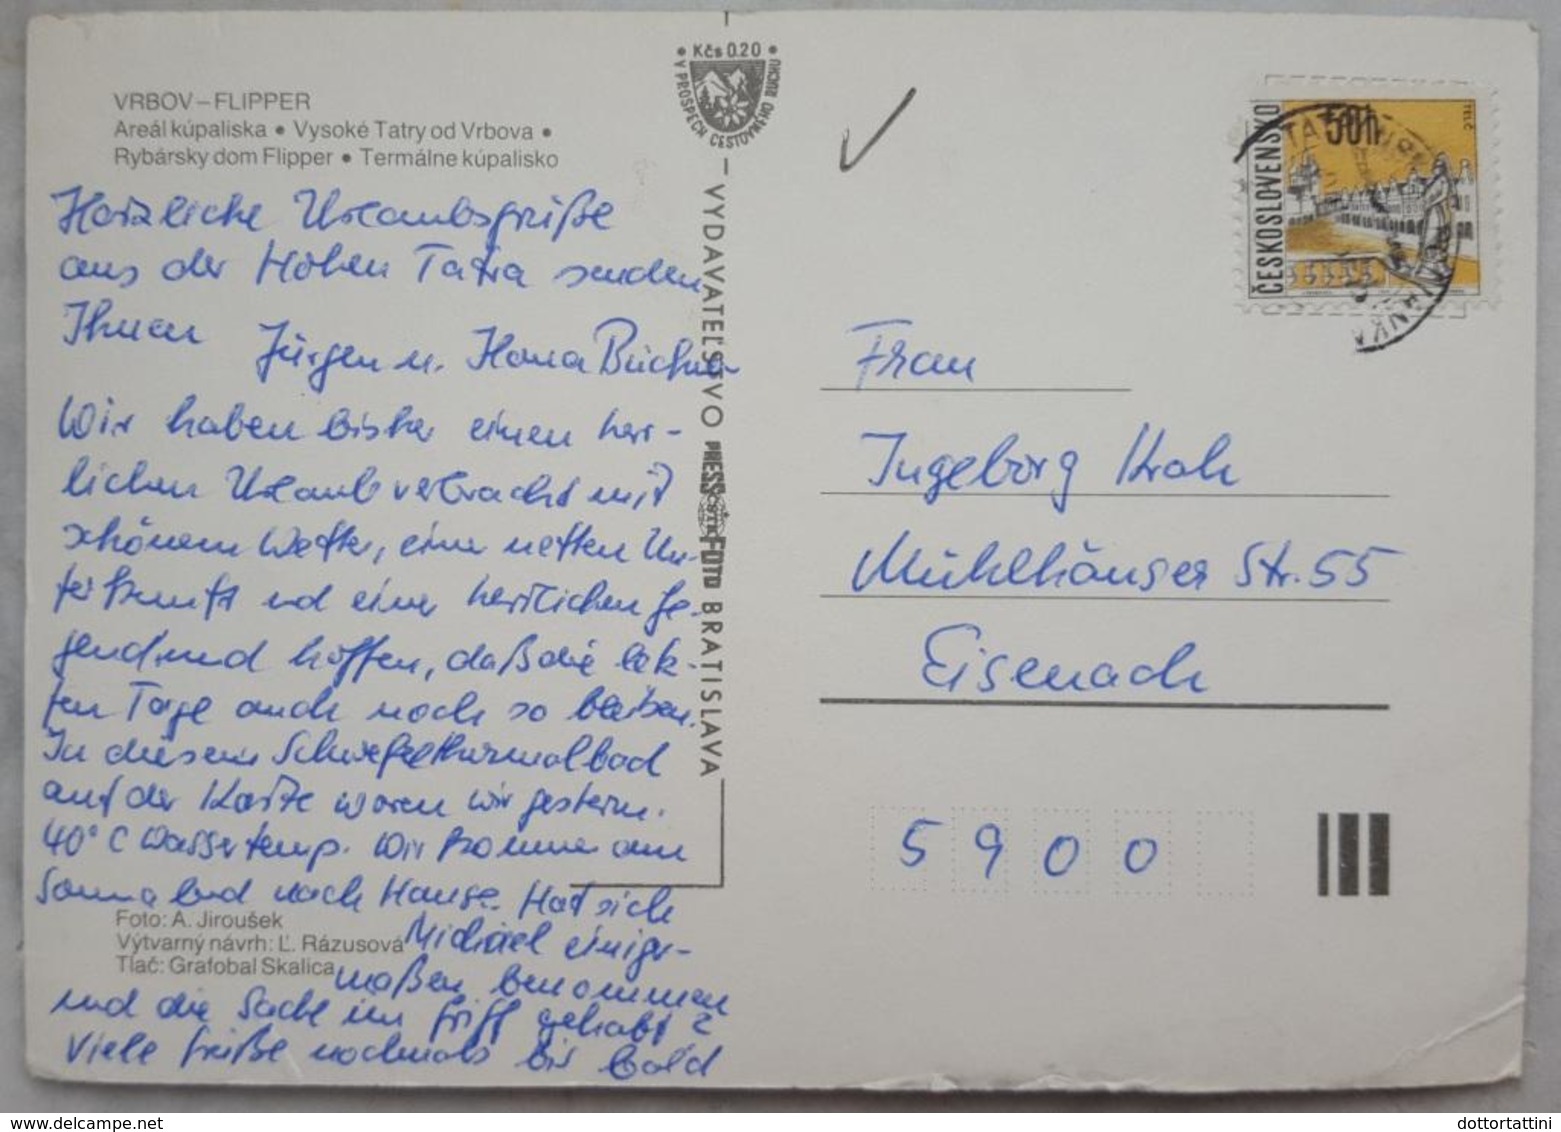 VRBOV – FLIPPER
Areál kúpaliska • Vysoké Tatry od Vrbova •
Rybársky dom Flipper • Termálne kúpalisko
Herzliche Urlaubsgrüße
aus der Hohen Tatra senden
Ihnen Jürgen u. Hana
Wir haben bisher einen herr-
lichen Urlaub verbracht mit
schönem Wetter, einer netten Un-
terkunft und einer herrlichen Ge-
gend und hoffen, daß die letz-
ten Tage auch noch so bleiben.
In diesem Schwefelthermalbad
auf der Karte waren wir gestern.
40° C Wassertemp. Wir kommen am
Sonnabend nach Hause. Hat sich
Michael einiger-
maßen benommen
und die Sache im Griff gehabt?
Viele Grüße nochmals bis bald
Foto: A. Jiroušek
Výtvarný návrh: Ľ. Rázusová
Tlač: Grafobal Skalica
• Kčs 0.20 •
V PROSPECH CESTOVNÉHO RUCHU
VYDAVATEĽSTVO PRESSFOTO BRATISLAVA
ČSTK
ČESKOSLOVENSKO
50h
TELČ
Frau
Ingeborg Kroh
Mühlhäuser Str. 55
Eisenach
5900
dottortattini